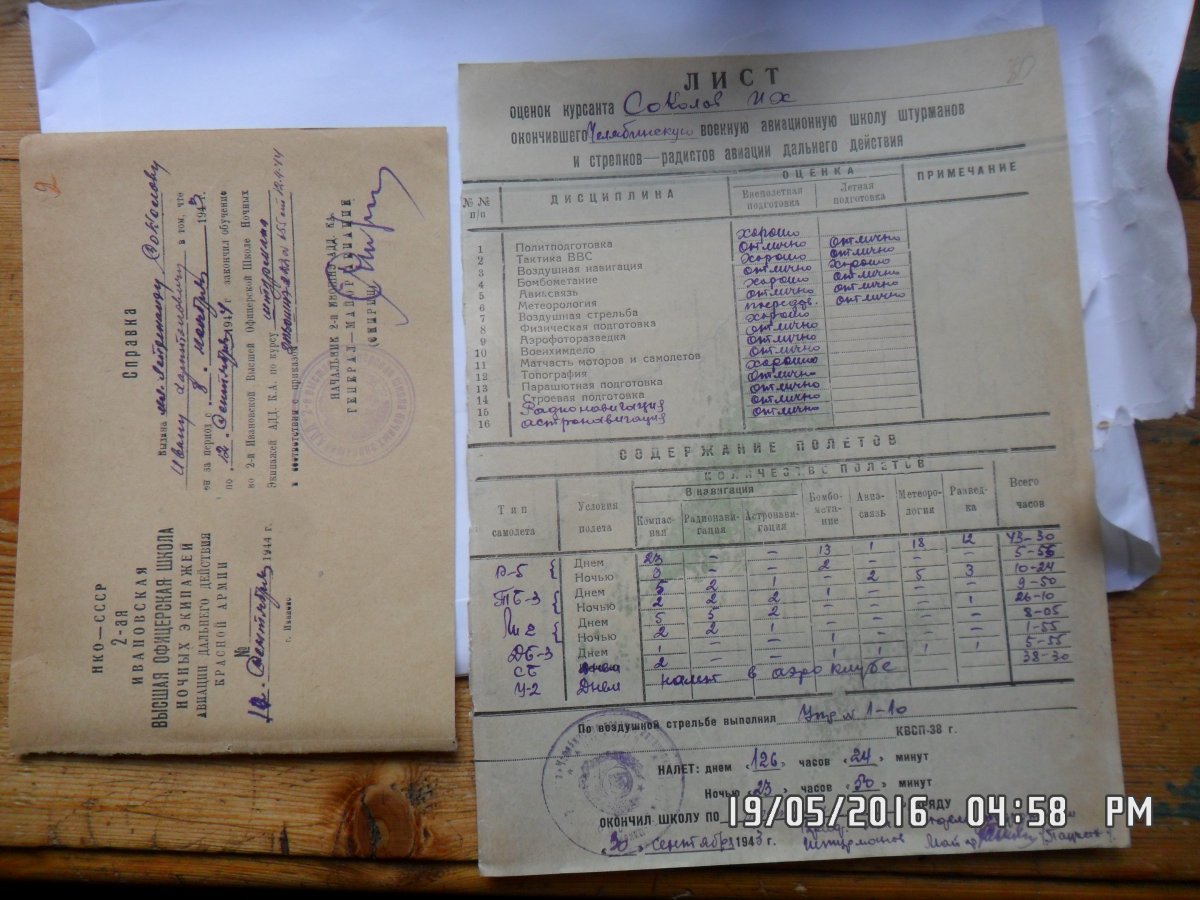 НКО—СССР
2-ая
ИВАНОВСКАЯ
ВЫСШАЯ ОФИЦЕРСКАЯ ШКОЛА
НОЧНЫХ ЭКИПАЖЕЙ
АВИАЦИИ ДАЛЬНЕГО ДЕЙСТВИЯ
КРАСНОЙ АРМИИ
№
12. Сентября 1944 г.
г. Иваново
2
Справка
Выдана мл. Лейтенанту Соколову
Ивану Харитоновичу в том, что
он за период с 8. ноября 1943 г.
по 12. Сентября 1944 г. закончил обучение
во 2-й Ивановской Высшей Офицерской Школе Ночных
Экипажей АДД. К.А. по курсу
в соответствии с приказом
НАЧАЛЬНИК 2-й ИВШНЭ АДД. КА.
ГЕНЕРАЛ—МАЙОР АВИАЦИИ
ЛИСТ
оценок курсанта Соколов И Х
окончившего Челябинскую военную авиационную школу штурманов
и стрелков—радистов авиации дальнего действия
№№ п/п
ДИСЦИПЛИНА
ОЦЕНКА
Внеполетная подготовка
Летная подготовка
ПРИМЕЧАНИЕ
1 Политподготовка хорошо
2 Тактика ВВС отлично отлично
3 Воздушная навигация хорошо отлично
4 Бомбометание отлично хорошо
5 Авиасвязь хорошо отлично
6 Метеорология отлично отлично
7 Воздушная стрельба посредв. отлично
8 Физическая подготовка хорошо
9 Аэрофоторазведка отлично
10 Военхимдело отлично
11 Матчасть моторов и самолетов отлично
12 Топография хорошо
13 Парашютная подготовка отлично
14 Строевая подготовка отлично
15 Радионавигация отлично
16 астронавигация отлично
СОДЕРЖАНИЕ ПОЛЕТОВ
КОЛИЧЕСТВО ПОЛЕТОВ
Тип самолета
Условия полета
В навигация
Компасная
Радионавигация
Астронавигация
Бомбометание
Авиасвязь
Метеорология
Разведка
Всего часов
Р-5 { Днем 23 – – 13 1 18 12 43-30
Ночью 3 – – 2 – – – 5-55
ТБ-3 { Днем 5 2 1 – 2 5 3 10-24
Ночью 2 2 2 1 – – – 9-50
{ Днем 5 5 2 – – – 1 26-10
Ночью 2 2 1 – – – – 8-05
ДБ-3 Днем 1 – – 1 1 1 1 1-55
СБ Днем 2 – – – – – – 5-55
У-2 Днем налет в аэро клубе 38-30
По воздушной стрельбе выполнил Упр N 1-10
КВСП-38 г.
НАЛЕТ: днем „126„ часов „24„ минут
Ночью „23„ часов „50„ минут
ОКОНЧИЛ ШКОЛУ ПО РАЗРЯДУ
„30„ сентября 1943 г. штурманов Майор
19/05/2016 04:58 PM